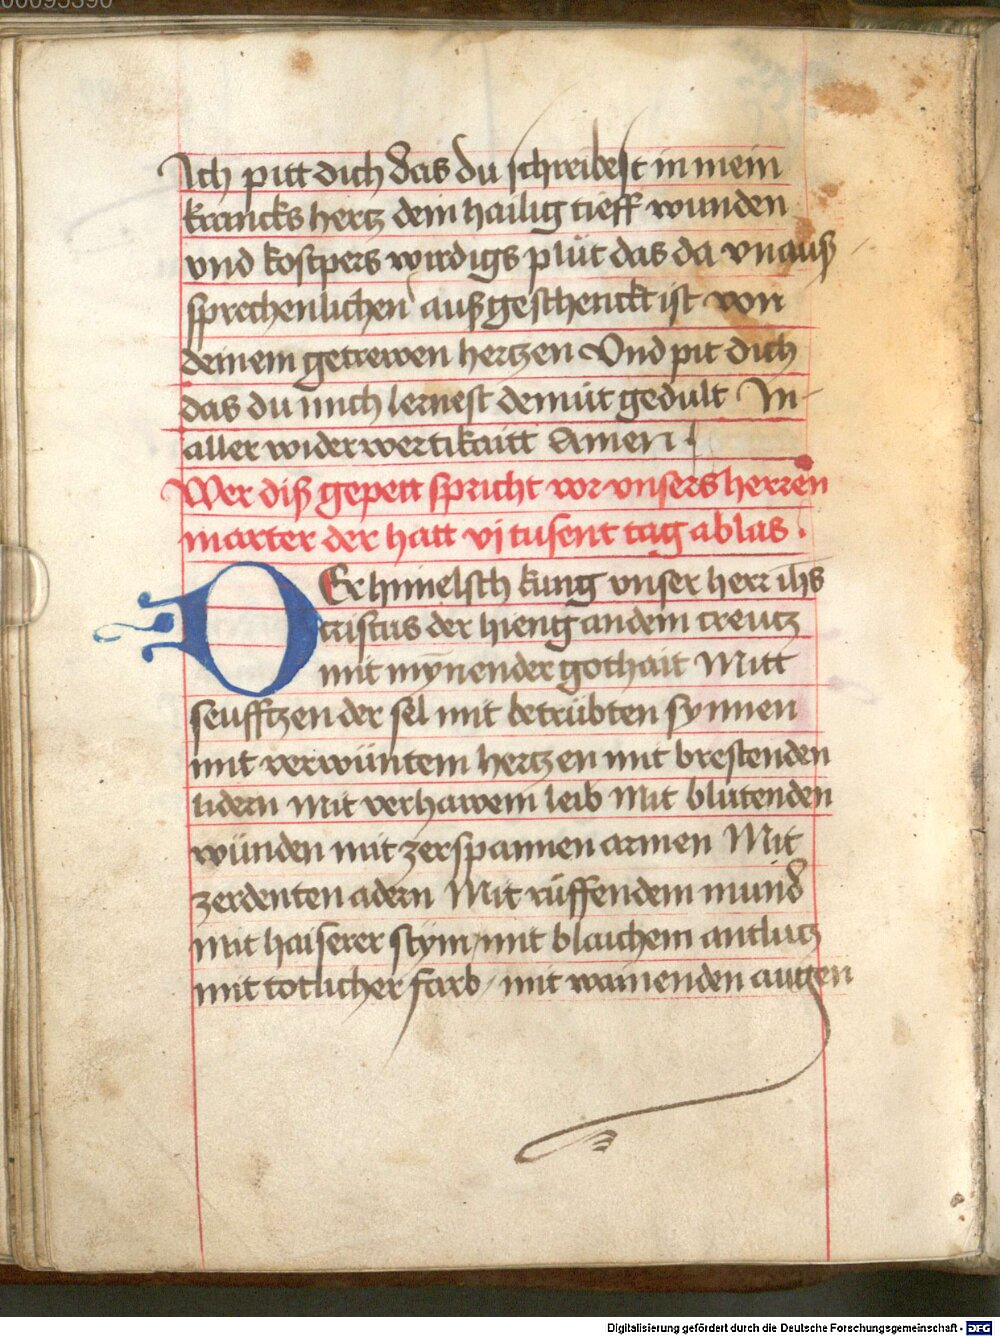 00095390
Ich pitt dich das du schreibest in mein
krancks hertz dein hailig tieff wunden
vnd kostpers wirdigs plůt das da vnauß
sprechenlichen außgeschenckt ist von
deinem getrewen hertzen Vnd pit dich
das du mich lernest demůt gedult In
aller widerwertikaitt Amen
Wer diß gepett spricht vor vnsers herren
marter der hatt vj tusent tag ablas .
DEr himelsch kung vnser herr ihs
cristus der hieng an dem creutz
mit mynender gothait Mitt
seufftzen der sel mit betrübten synnen
mit verwüntem hertzen mit brestenden
lidern Mit verhawem leib Mit blutenden
wünden mit zerspannen armen Mit
zerdenten adern Mit rüffendem mund
mit haiserer stym / mit blaichem antlutz
mit totlicher farb / mit wainenden augen
Digitalisierung gefördert durch die Deutsche Forschungsgemeinschaft - DFG